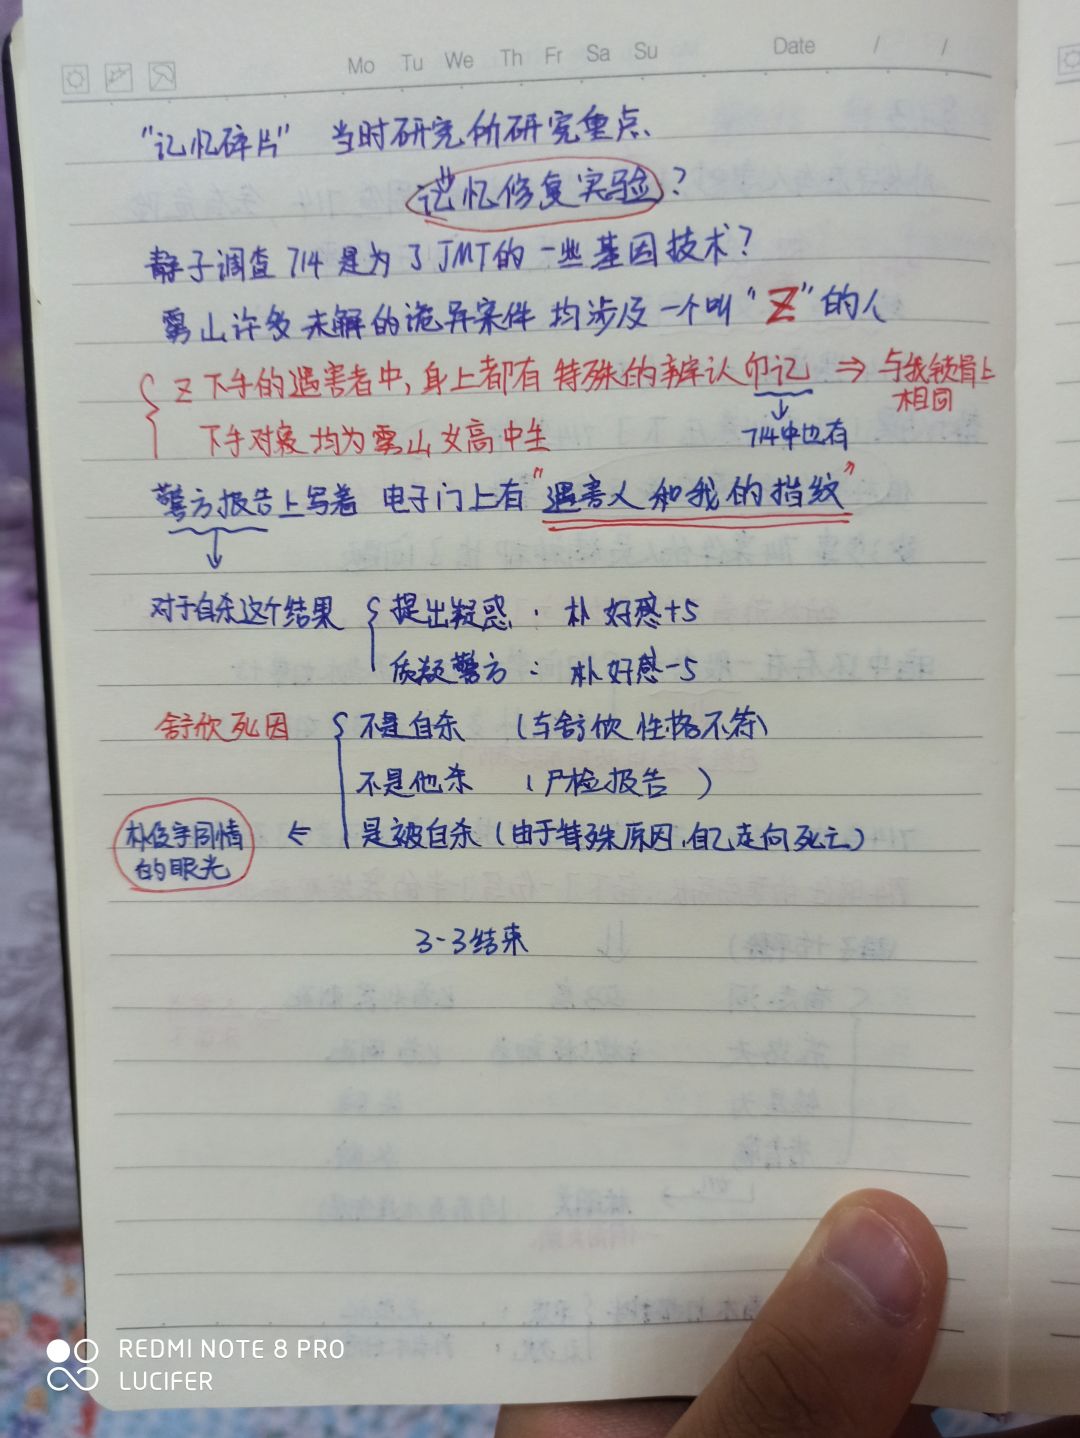 Mo Tu We Th Fr Sa Su Date / /
"记忆碎片" 当时研究所研究重点
记忆修复实验?
静子调查714是为了JMT的一些基因技术?
雾山许多未解的诡异案件 均涉及一个叫"Z"的人
Z下手的遇害者中,身上都有特殊的辨认印记 ⇒ 与我锁骨上
相同
下手对象均为雾山女高中生
714中也有
警方报告上写着 电子门上有"遇害人和我的指纹"
对于自杀这个结果 提出疑惑: 朴好感+5
质疑警方: 朴好感-5
舒欣死因 不是自杀 (与舒欣性格不符)
不是他杀 (尸检报告)
朴俊宇同情 ⇐ 是被自杀(由于特殊原因,自己走向死亡)
的眼光
3-3结束
REDMI NOTE 8 PRO
LUCIFER